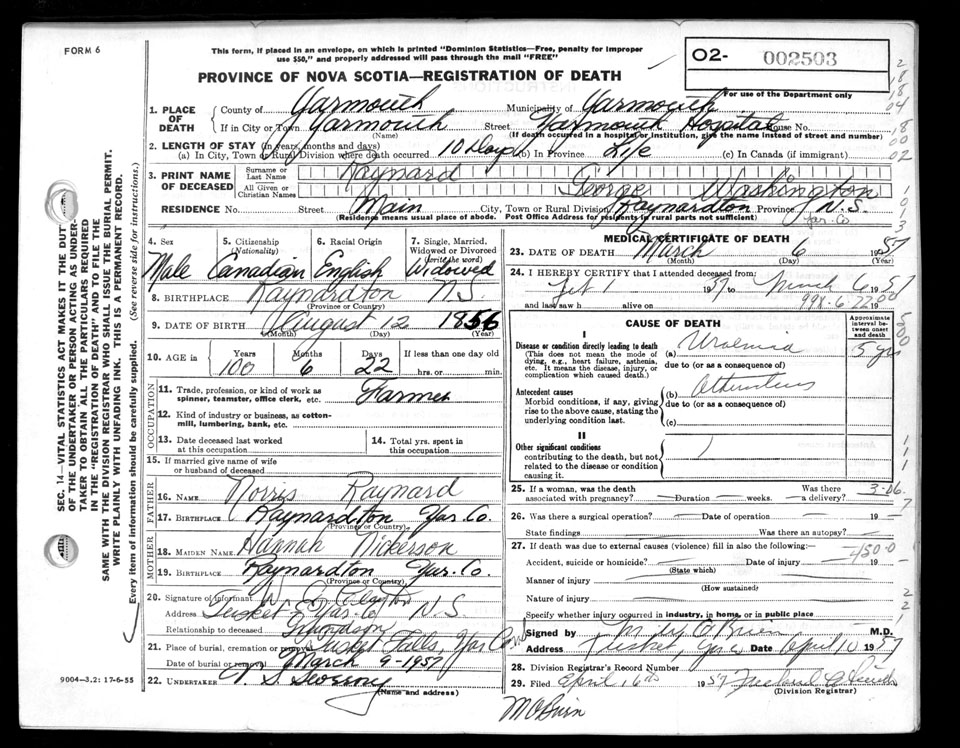 FORM 6
This form, if placed in an envelope, on which is printed "Dominion Statistics—Free, penalty for improper
use $50," and properly addressed will pass through the mail "FREE"
PROVINCE OF NOVA SCOTIA—REGISTRATION OF DEATH
O2- 002503
For use of the Department only
1. PLACE OF DEATH
County of Yarmouth Municipality of Yarmouth
If in City or Town Yarmouth Street Yarmouth Hospital House No.
(Name) (If death occurred in a hospital or institution, give the name instead of street and number)
2. LENGTH OF STAY (in years, months and days)
(a) In City, Town or Rural Division where death occurred 10 Days (b) In Province Life (c) In Canada (if immigrant)
3. PRINT NAME OF DECEASED
Surname or Last Name Raynard
All Given or Christian Names George Washington
RESIDENCE No. Street Main City, Town or Rural Division Raynardton Province N.S.
(Residence means usual place of abode. Post Office Address for residents in rural parts not sufficient) Yar. Co
4. Sex Male
5. Citizenship (Nationality) Canadian
6. Racial Origin English
7. Single, Married, Widowed or Divorced (write the word) Widowed
8. BIRTHPLACE Raynardton N.S.
(Province or Country)
9. DATE OF BIRTH August 12 1856
(Month) (Day) (Year)
10. AGE in Years 100 Months 6 Days 22 If less than one day old
hrs. or min.
OCCUPATION
11. Trade, profession, or kind of work as
spinner, teamster, office clerk, etc. Farmer
12. Kind of industry or business, as cotton-
mill, lumbering, bank, etc.
13. Date deceased last worked
at this occupation
14. Total yrs. spent in
this occupation
15. If married give name of wife
or husband of deceased
FATHER
16. NAME Norris Raynard
17. BIRTHPLACE Raynardton Yar. Co.
(Province or Country)
MOTHER
18. MAIDEN NAME Hannah Nickerson
19. BIRTHPLACE Raynardton Yar. Co.
(Province or Country)
20. Signature of informant
Address Tusket Yar-Co N.S.
Relationship to deceased Grandson
21. Place of burial, cremation or removal Tusket Falls, Yar Co
Date of burial or removal March 9-1957
22. UNDERTAKER
(Name and address)
9004-3.2: 17-6-55
SEC. 14—VITAL STATISTICS ACT MAKES IT THE DUTY
OF THE UNDERTAKER OR PERSON ACTING AS UNDER-
TAKER TO OBTAIN ALL THE PARTICULARS REQUIRED
IN THE "REGISTRATION OF DEATH" AND TO FILE THE
SAME WITH THE DIVISION REGISTRAR WHO SHALL ISSUE THE BURIAL PERMIT.
WRITE PLAINLY WITH UNFADING INK. THIS IS A PERMANENT RECORD.
Every item of information should be carefully supplied. (See reverse side for instructions.)
MEDICAL CERTIFICATE OF DEATH
23. DATE OF DEATH March 6 1957
(Month) (Day) (Year)
24. I HEREBY CERTIFY that I attended deceased from
1957 to March 6 1957
and last saw h alive on 19
CAUSE OF DEATH
Approximate interval between onset and death
I
Disease or condition directly leading to death
(This does not mean the mode of
dying, e.g., heart failure, asthenia,
etc. It means the disease, injury, or
complication which caused death.)
(a) Uraemia 5 yrs
due to (or as a consequence of)
Antecedent causes
Morbid conditions, if any, giving
rise to the above cause, stating the
underlying condition last.
(b)
due to (or as a consequence of)
(c)
II
Other significant conditions
contributing to the death, but not
related to the disease or condition
causing it.
25. If a woman, was the death
associated with pregnancy? Duration weeks. Was there a delivery?
26. Was there a surgical operation? Date of operation 19
State findings Was there an autopsy?
27. If death was due to external causes (violence) fill in also the following:—
Accident, suicide or homicide? Date of injury 19
(State which)
Manner of injury
(How sustained)
Nature of injury
Specify whether injury occurred in industry, in home, or in public place
Signed by M.D.
Address Tusket, Yar. Co Date April 10 1957
28. Division Registrar's Record Number
29. Filed April 16th 1957
(Division Registrar)